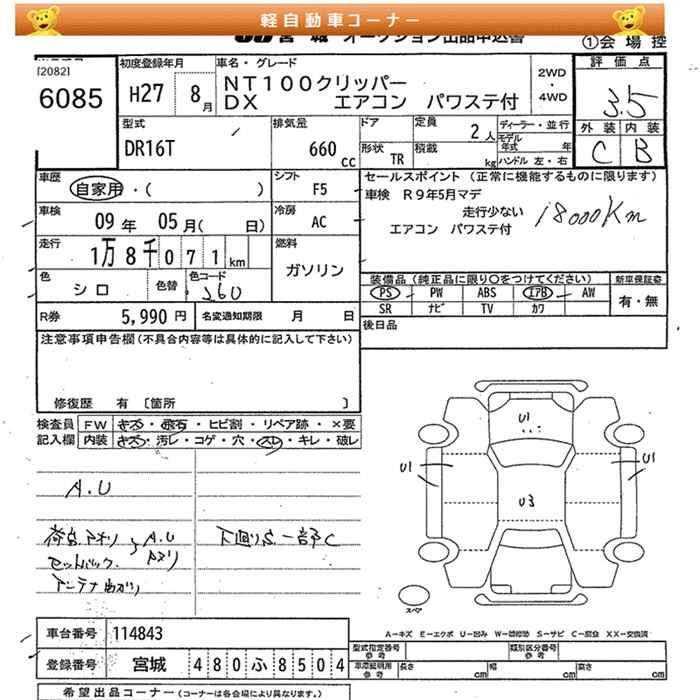 軽自動車コーナー
宮城 オークション出品申込書
①会場控
[2082]
6085
初度登録年月
H27 8月
車名・グレード
NT100クリッパー
DX エアコン パワステ付
2WD
・
4WD
評価点
3.5
外装 内装
C B
型式
DR16T
排気量
660 cc
ドア
形状 TR
定員 2人
積載 kg
ディーラー・並行
モデル年式 年
ハンドル 左・右
車歴
自家用・( )
シフト
F5
車検
09年 05月( 日)
冷房
AC
走行
1万8千071km
燃料
ガソリン
色
シロ
色替
色コード
J60
セールスポイント (正常に機能するものに限ります)
車検 R9年5月マデ
走行少ない
18000Km
エアコン パワステ付
装備品(純正品に限り○をつけてください)
新車保証書
PS PW ABS エアB AW
有・無
SR ナビ TV カワ
後日品
R券 5,990円
名変通知期限 月 日
注意事項申告欄(不具合内容等は具体的に記入して下さい)
修復歴 有 〔箇所 〕
検査員記入欄
FW キズ・飛石・ヒビ割・リペア跡・×要
内装 キズ・汚レ・コゲ・穴・スレ・キレ・破レ
A.U
荷台.アオリ
セットバック.
A.U
アンテナ曲がり
下廻りS.一部C
U1
U1
U3
U1
スペア
A-キズ E-エクボ U-凹み W-補修跡 S-サビ C-腐食 XX-交換済
車台番号 114843
登録番号 宮城 480ふ8504
型式指定番号 参考
類別区分番号 参考
車庫証明用 参考
長さ cm 幅 cm 高さ cm
希望出品コーナー(コーナーは各会場により異なります。)